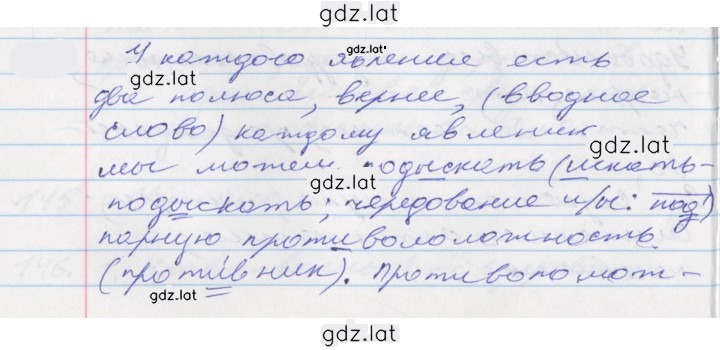 gdz.lat
У каждого явления есть
gdz.lat
gdz.lat
два полюса, вернее, (вводное
слово) каждому явлению
мы можем подыскать (искать-
gdz.lat
подыскать; чередование и/ы: под)
парную противоположность
(противник). Противополож-
gdz.lat
gdz.lat
gdz.lat